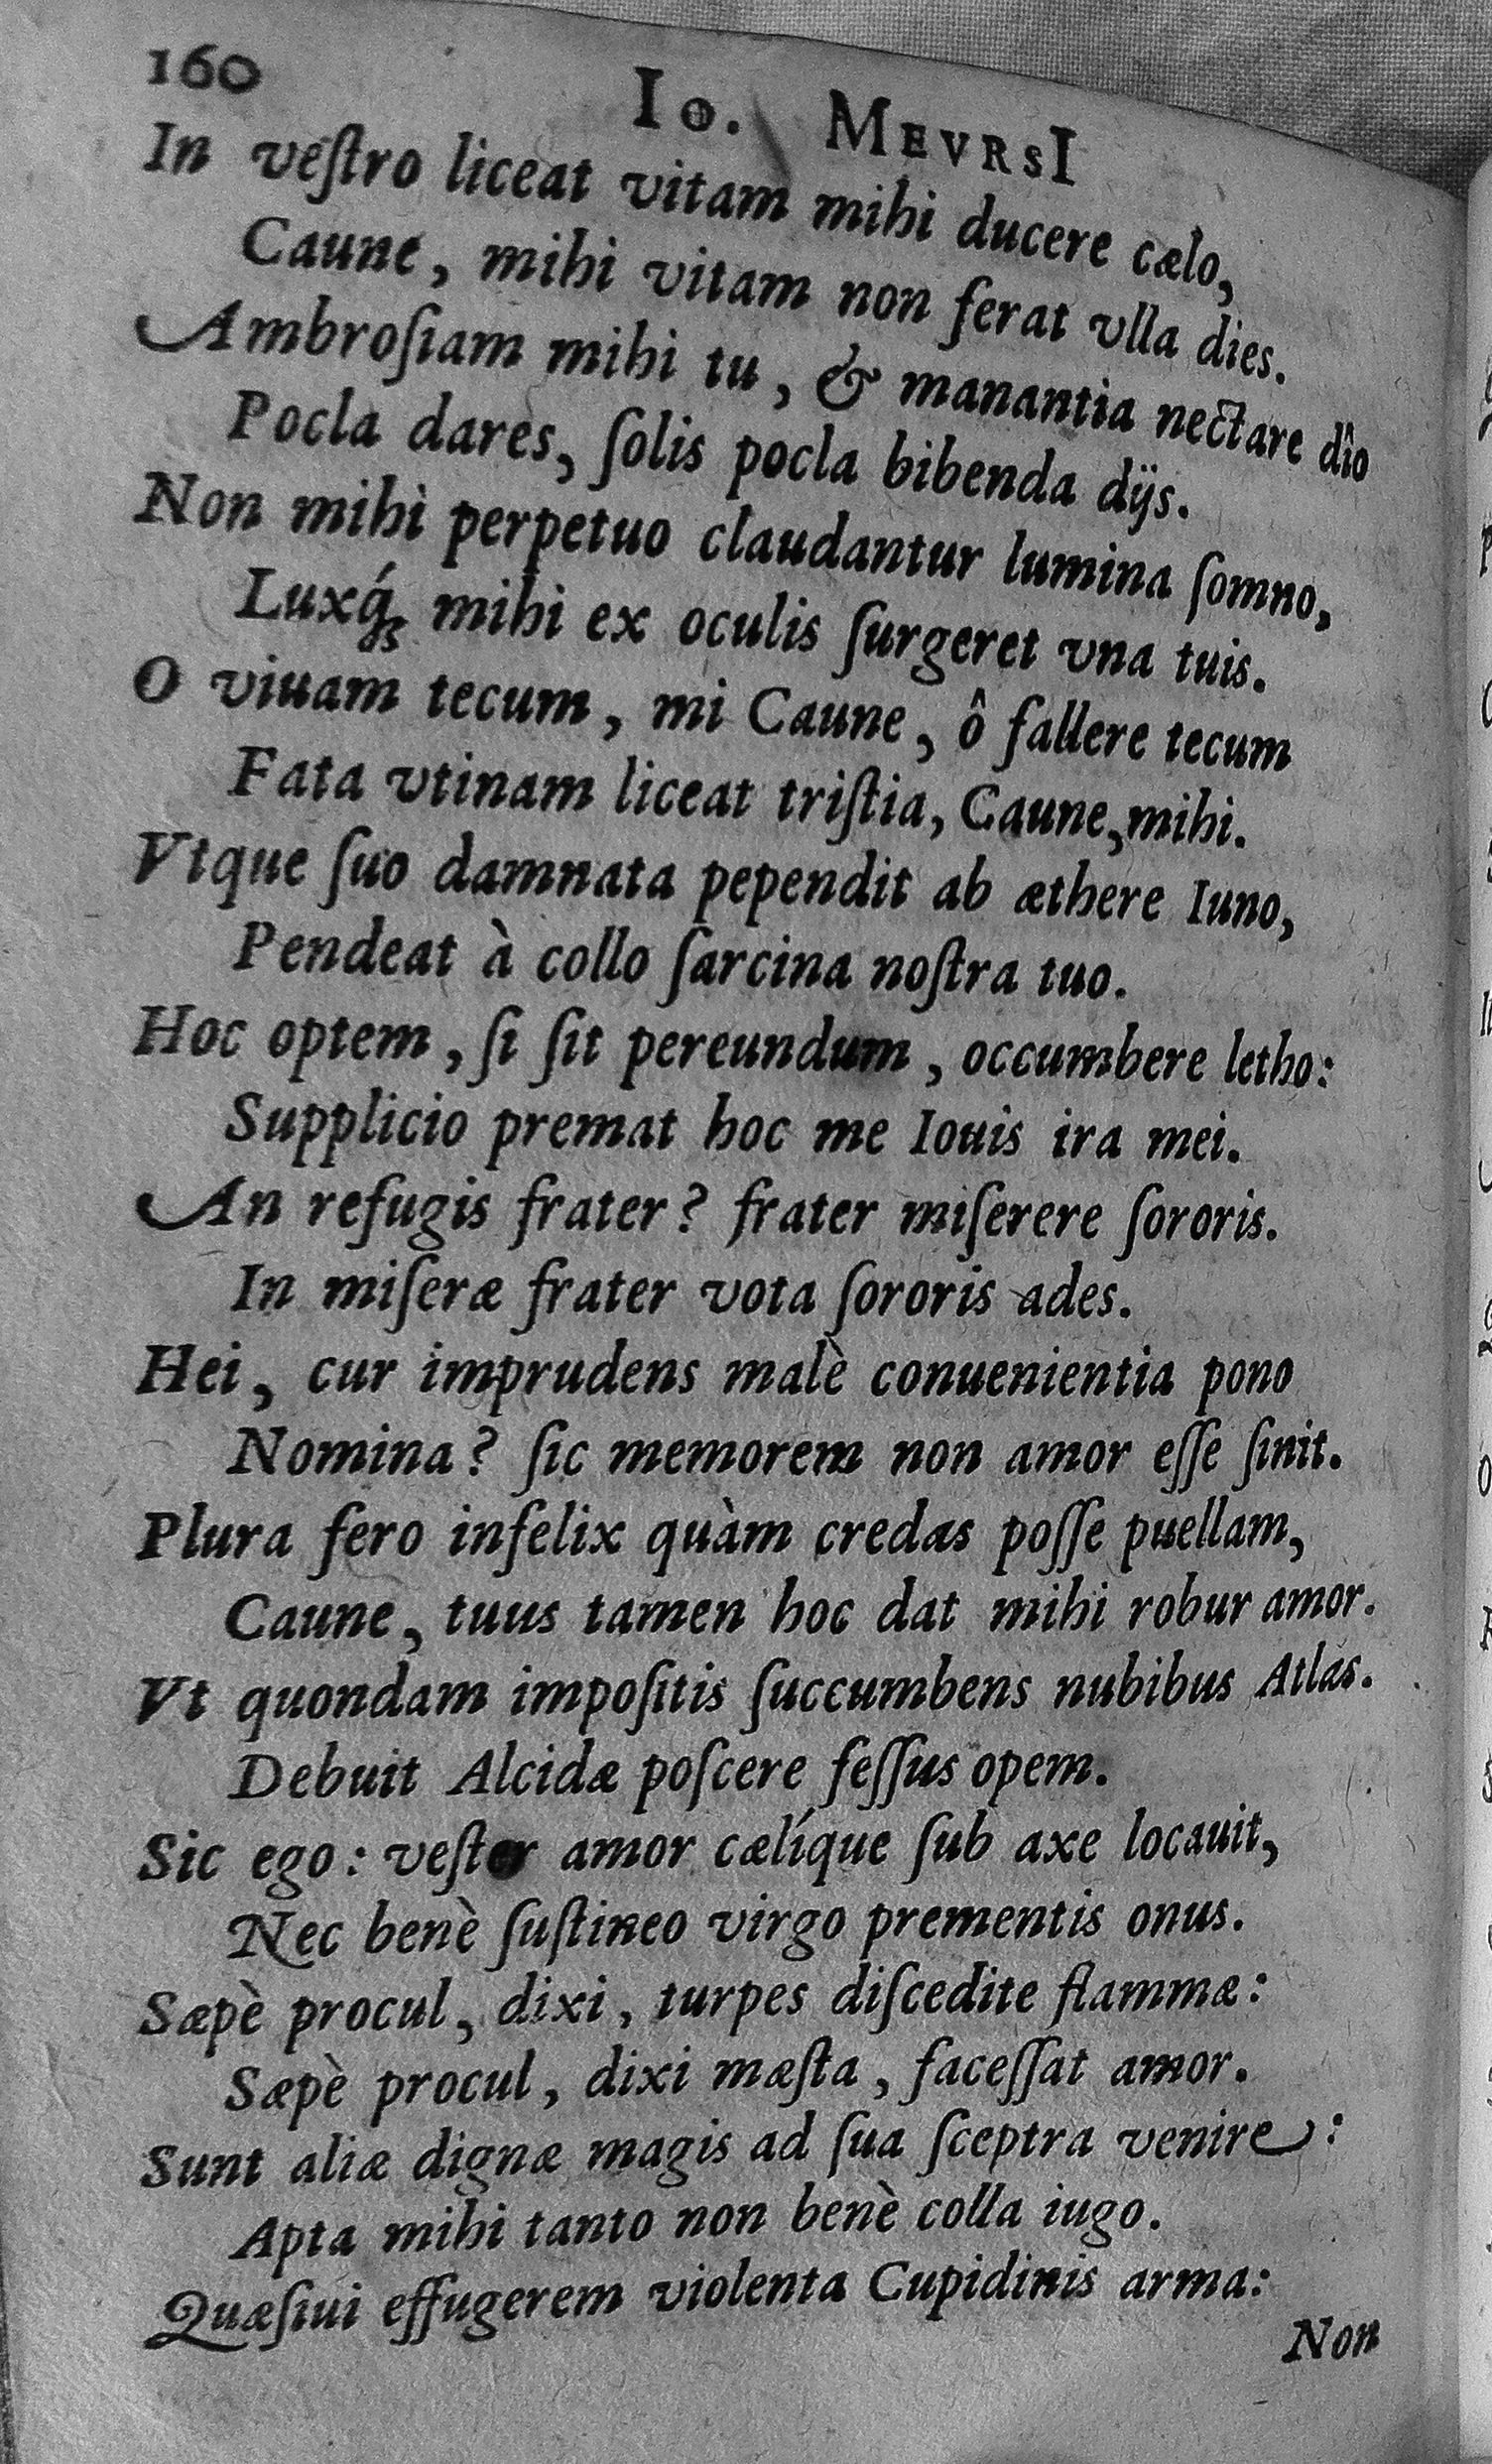 160
Io. MEVRSI
In veſtro liceat vitam mihi ducere cælo,
Caune, mihi vitam non ferat vlla dies.
Ambroſiam mihi tu, & manantia nectare dîo
Pocla dares, ſolis pocla bibenda dijs.
Non mihi perpetuo claudantur lumina ſomno,
Luxq́; mihi ex oculis ſurgeret vna tuis.
O viuam tecum, mi Caune, ô fallere tecum
Fata vtinam liceat triſtia, Caune, mihi.
Vtque ſuo damnata pependit ab æthere Iuno,
Pendeat à collo ſarcina noſtra tuo.
Hoc optem, ſi ſit pereundum, occumbere letho:
Supplicio premat hoc me Iouis ira mei.
An refugis frater? frater miſerere ſororis.
In miſeræ frater vota ſororis ades.
Hei, cur imprudens malè conuenientia pono
Nomina? ſic memorem non amor eſſe ſinit.
Plura fero infelix quàm credas poſſe puellam,
Caune, tuus tamen hoc dat mihi robur amor.
Vt quondam impoſitis ſuccumbens nubibus Atlas.
Debuit Alcidæ poſcere feſſus opem.
Sic ego: veſter amor cælíque ſub axe locauit,
Nec benè ſuſtineo virgo prementis onus.
Sæpè procul, dixi, turpes diſcedite flammæ:
Sæpè procul, dixi mæſta, faceſſat amor.
Sunt aliæ dignæ magis ad ſua ſceptra venire:
Apta mihi tanto non benè colla iugo.
Quæſiui effugerem violenta Cupidinis arma:
Non